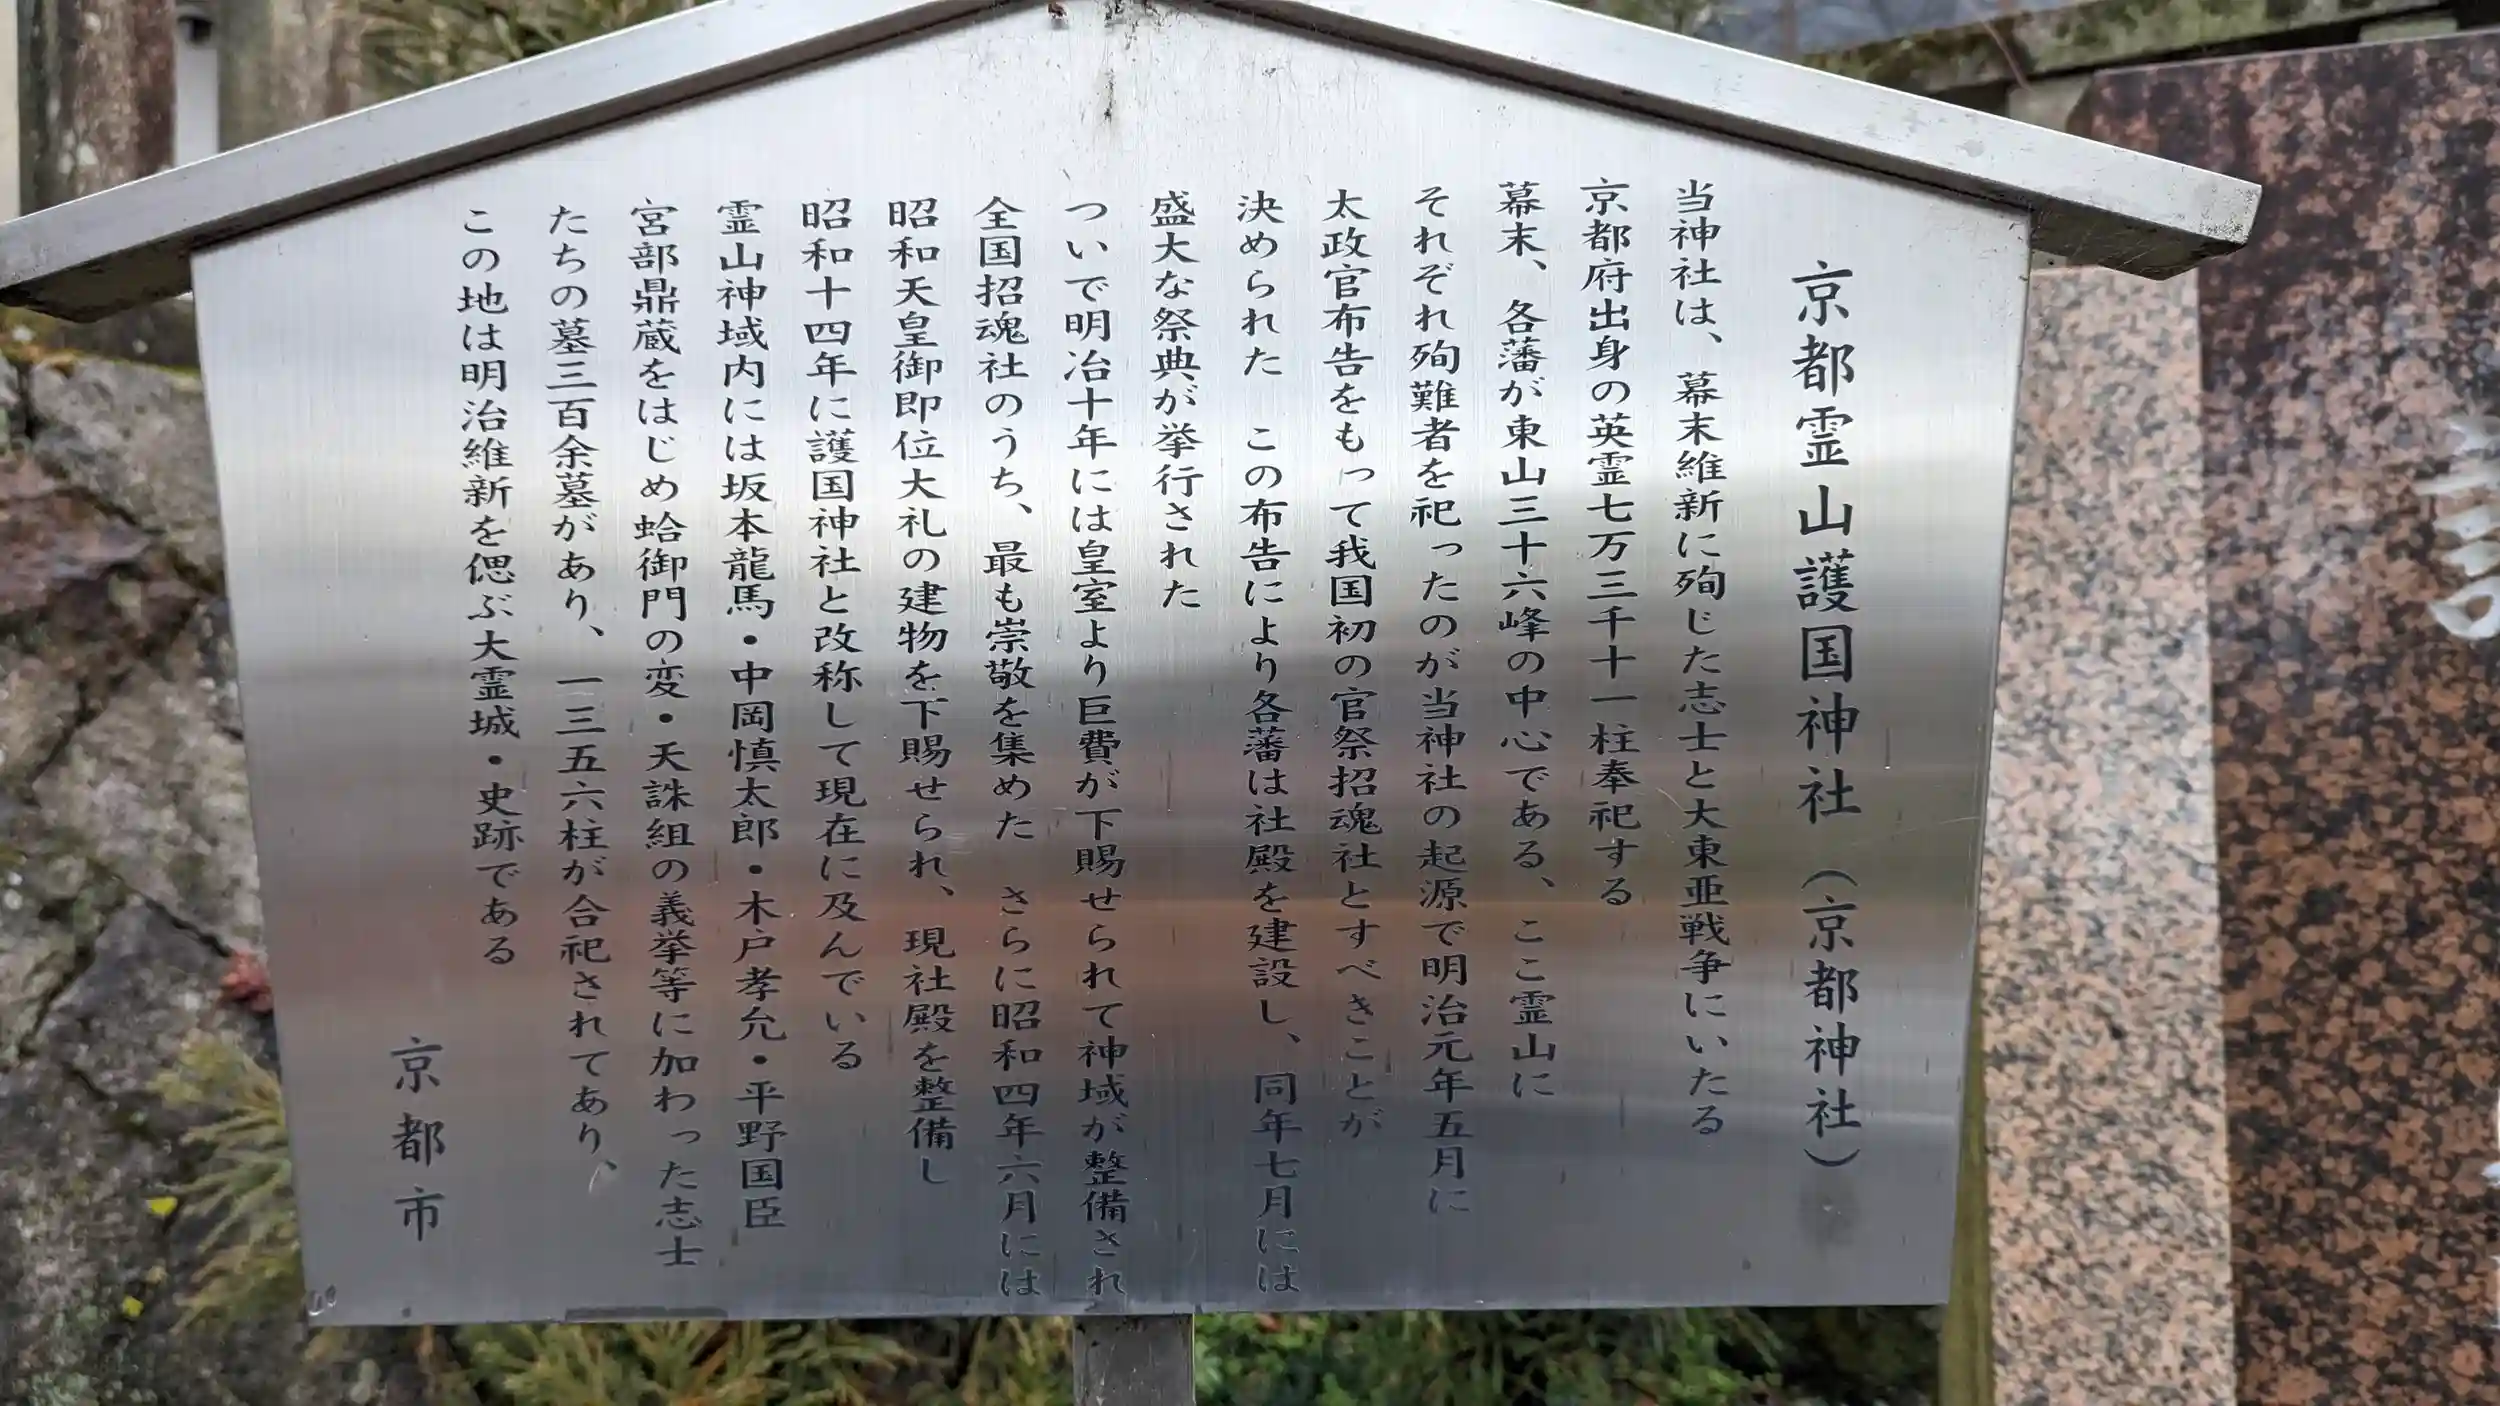 京都霊山護国神社（京都神社）
当神社は、幕末維新に殉じた志士と大東亜戦争にいたる
京都府出身の英霊七万三千十一柱奉祀する
幕末、各藩が東山三十六峰の中心である、ここ霊山に
それぞれ殉難者を祀ったのが当神社の起源で明治元年五月に
太政官布告をもって我国初の官祭招魂社とすべきことが
決められた　この布告により各藩は社殿を建設し、同年七月には
盛大な祭典が挙行された
ついで明治十年には皇室より巨費が下賜せられて神域が整備され
全国招魂社のうち、最も崇敬を集めた　さらに昭和四年六月には
昭和天皇御即位大礼の建物を下賜せられ、現社殿を整備し
昭和十四年に護国神社と改称して現在に及んでいる
霊山神域内には坂本龍馬・中岡慎太郎・木戸孝允・平野国臣
宮部鼎蔵をはじめ蛤御門の変・天誅組の義挙等に加わった志士
たちの墓三百余墓があり、一三五六柱が合祀されてあり、
この地は明治維新を偲ぶ大霊城・史跡である
京都市